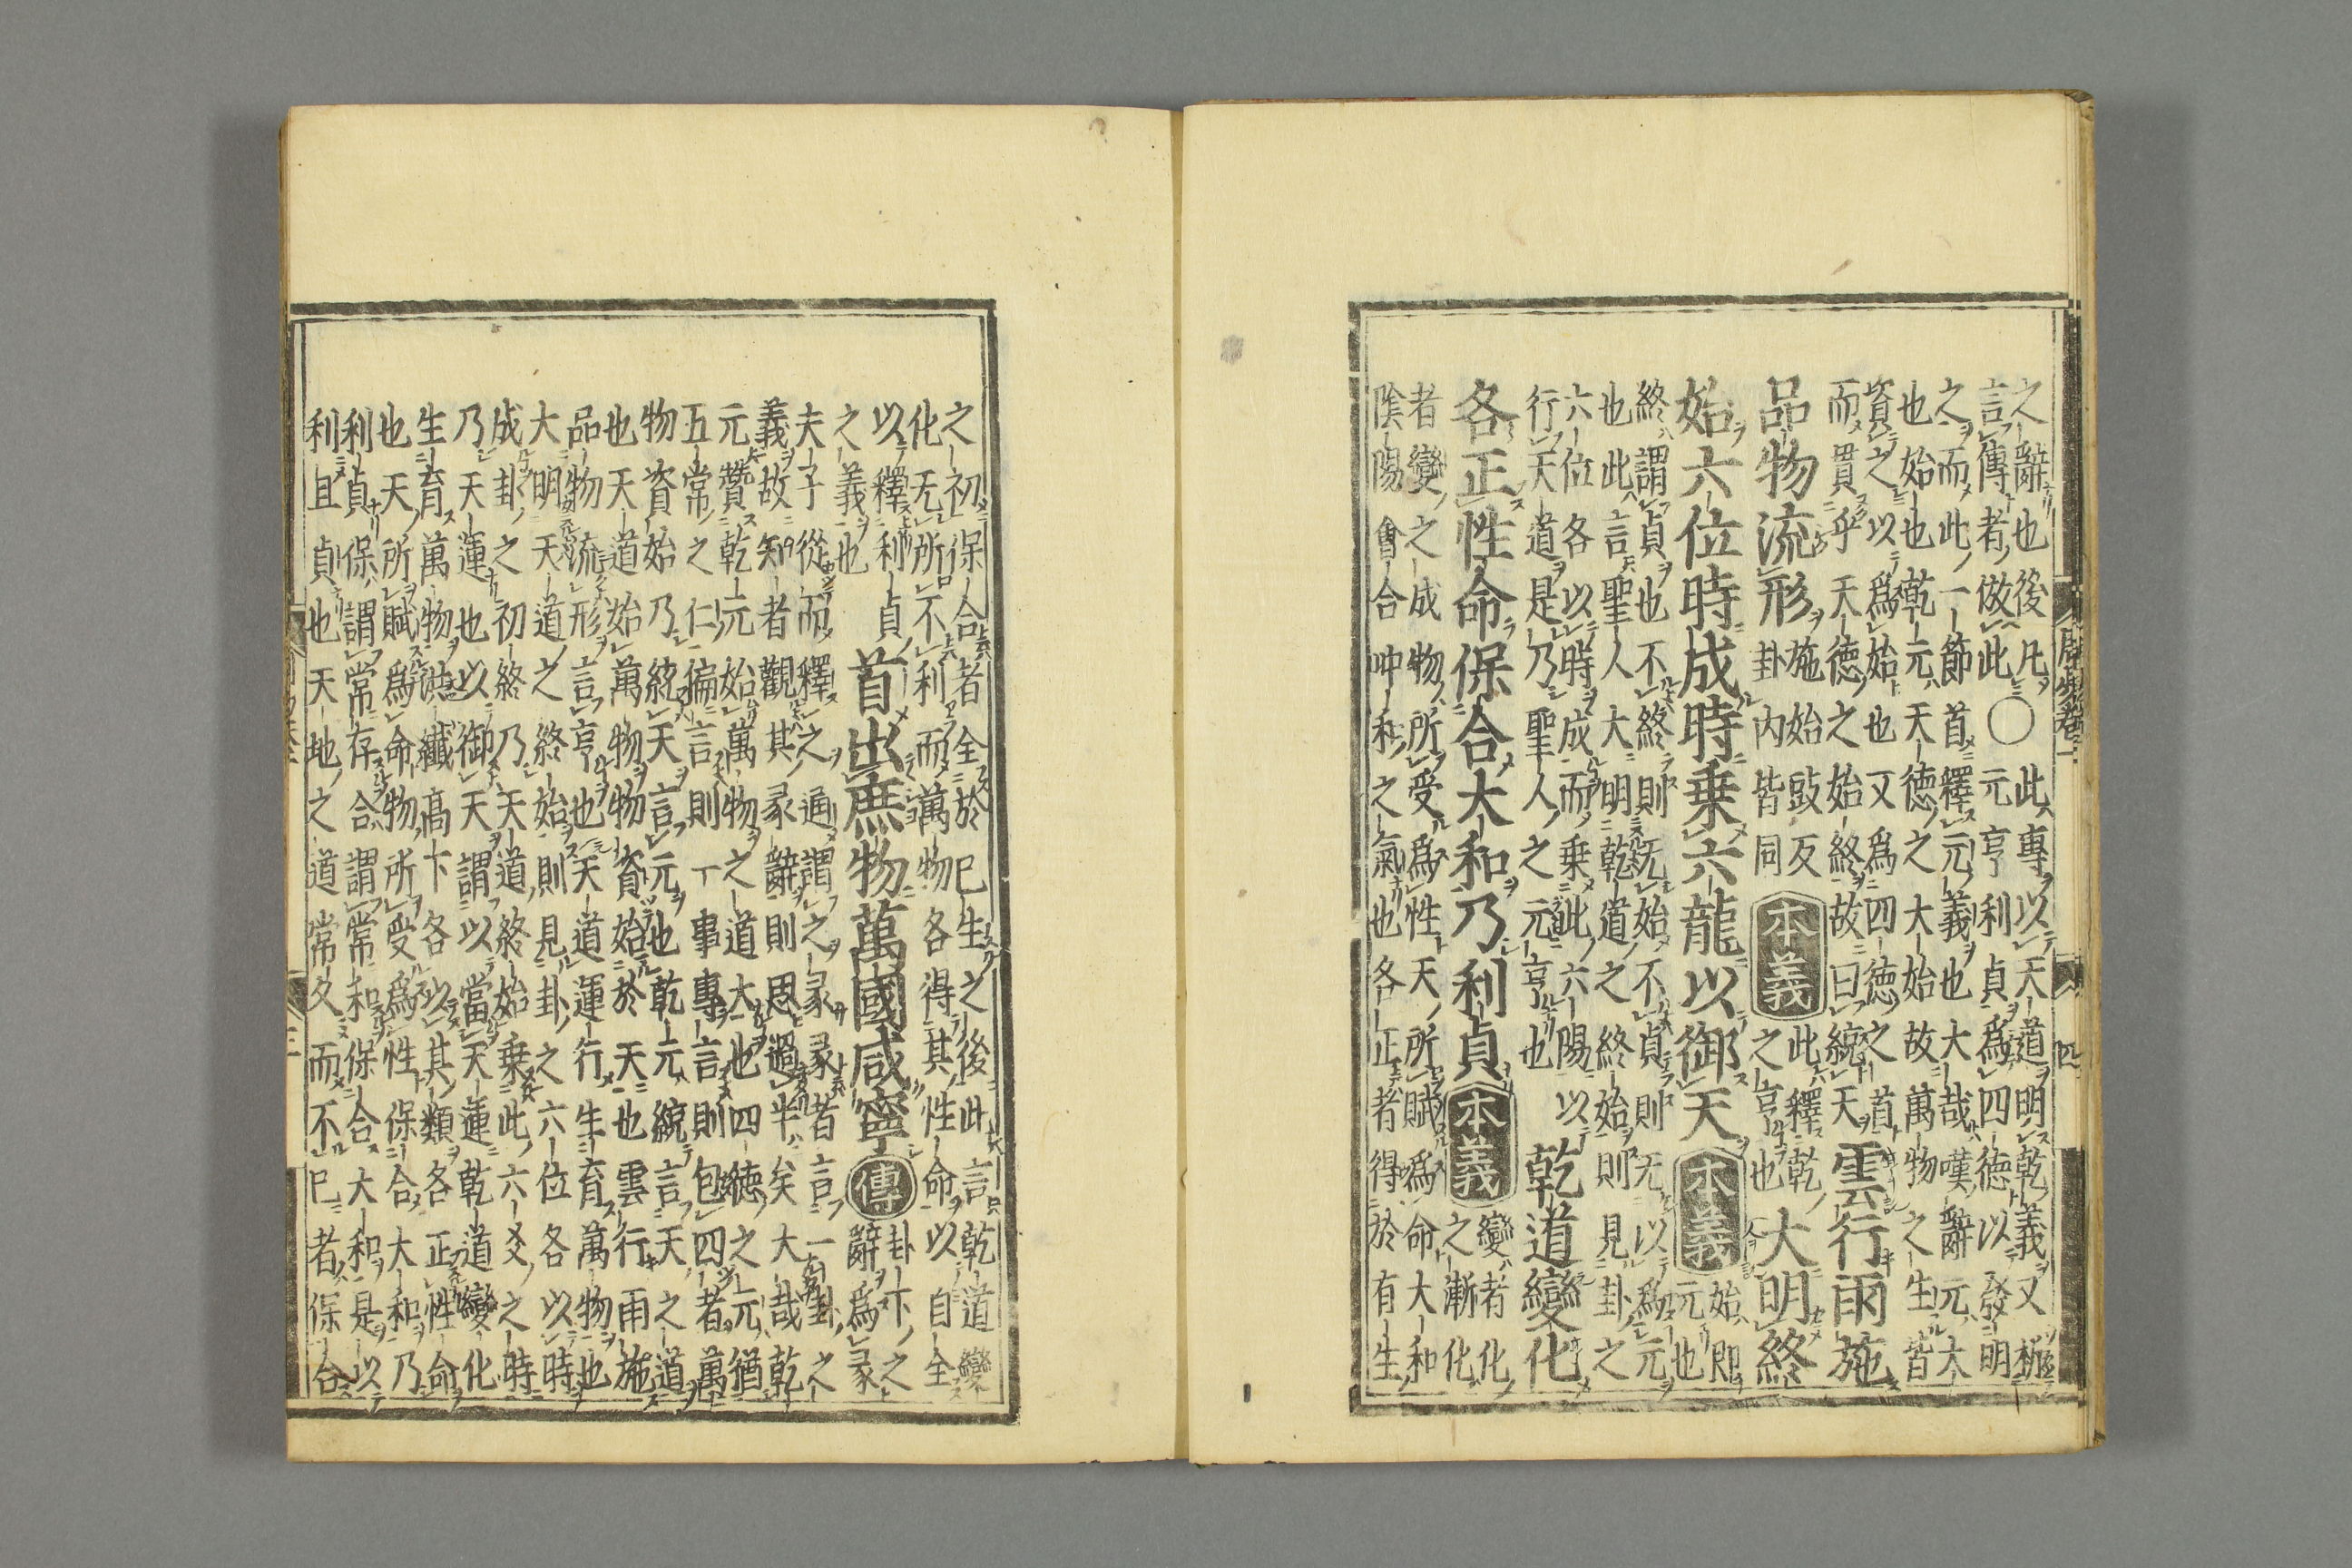 之辭也後凡
言傳者倣此〇
此專以天道明乾義又析
元亨利貞爲四德以發明
之而此一節首釋元義也大哉嘆辭元大
也始也乾元天德之大始故萬物之生皆
資之以爲始也又爲四德之首
而貫乎天德之始終故曰統天
雲行雨施
品物流形
施始豉反
卦内皆同
本義
此釋乾
之亨也
大明終
始六位時成時乗六龍以御天
本義
始即
元也
終謂貞也不終則无始不貞則无以爲元
也此言聖人大明乾道之終始則見卦之
六位各以時成而乗此六陽以
行天道是乃聖人之元亨也
乾道變化
各正性命保合大和乃利貞
本義
變者化
之漸化
者變之成物所受爲性天所賦爲命大和
陰陽會合冲和之氣也各正者得於有生
之初保合者全於已生之後此言乾道變
化无所不利而萬物各得其性命以自全
以釋利貞
之義也
首出庶物萬國咸寧
傳
卦下之
辭爲彖
夫子從而釋之通謂之彖彖者言一卦之
義故知者觀其彖辭則思過半矣大哉乾
元贊乾元始萬物之道大也四德之元猶
五常之仁偏言則一事專言則包四者萬
物資始乃統天言元也乾元統言天之道
也天道始萬物物資始於天也雲行雨施
品物流形言亨也天道運行生育萬物也
大明天道之終始則見卦之六位各以時
成卦之初終乃天道終始乗此六爻之時
乃天運也以御天謂以當天運乾道變化
生育萬物洪纖髙下各以其類各正性命
也天所賦爲命物所受爲性保合大和乃
利貞保謂常存合謂常和保合大和是以
利且貞也天地之道常久而不已者保合